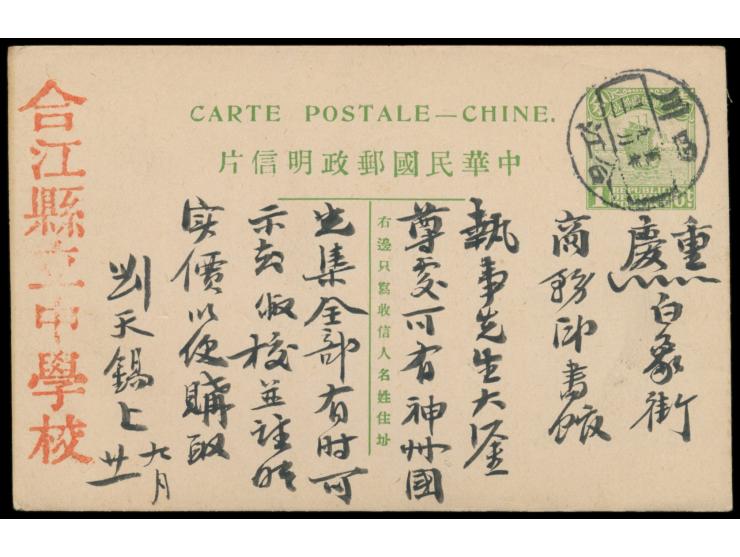 CARTE POSTALE—CHINE.
中華民國郵政明信片
右邊只寫收信人名姓住址
重慶白象街
商務印書館
執事先生大鑒
尊處可有神州國
光集全部有时可
示知敝校並註明
实價以便購取
刘天錫上
九月廿一
合江縣立中學校
四川
合江
REPUBLIC
1